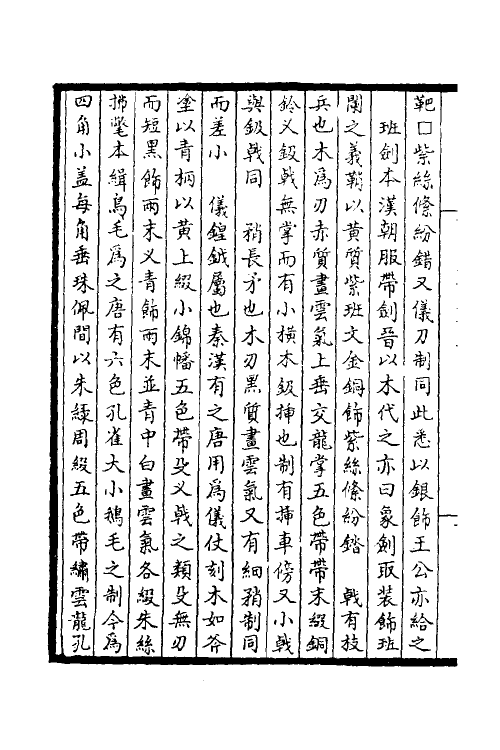 靶囗紫絲絛紛錯又儀刀制同此悉以銀飾王公亦給之
班劍本漢朝服帶劍晉以木代之亦曰象劍取裝飾班
闌之義鞘以黃質紫班文金銅飾紫絲絛紛錔　戟有枝
兵也木為刃赤質畫雲氣上垂交龍掌五色帶帶末綴銅
鈴又鈒戟無掌而有小橫木鈒揷也制有揷車傍又小戟
與鈒戟同　矟長矛也木刃黑質畫雲氣又有細矟制同
而差小　儀鍠鉞屬也秦漢有之唐用為儀仗刻木如斧
塗以青柄以黃上綴小錦幡五色帶殳义戟之類殳無刃
而短黑飾兩末义青飾兩末並青中白畫雲氣各綴朱絲
拂氅本緝鳥毛為之唐有六色孔雀大小鵝毛之制今為
四角小盖每角垂珠佩間以朱綠周綴五色帶繡雲龍孔